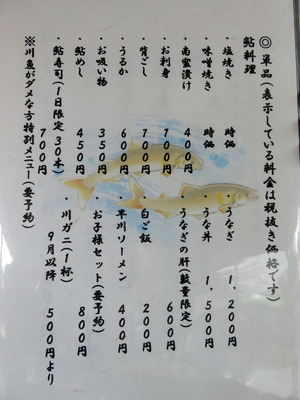 ◎単品(表示している料金は税抜き価格です)
鮎料理
・塩焼き 時価
・味噌焼き 時価
・南蛮漬け 400円
・お刺身 700円
・背ごし 700円
・うるか 600円
・お吸い物 350円
・鮎めし 450円
・鮎寿司(1日限定30本) 700円
・うなぎ 1,200円
・うな丼 1,500円
・うなぎの肝(数量限定) 600円
・白ご飯 200円
・早川ソーメン 400円
・お子様セット(要予約) 800円
・川ガニ(1杯) 500円より
9月以降
※川魚がダメな方特別メニュー(要予約)